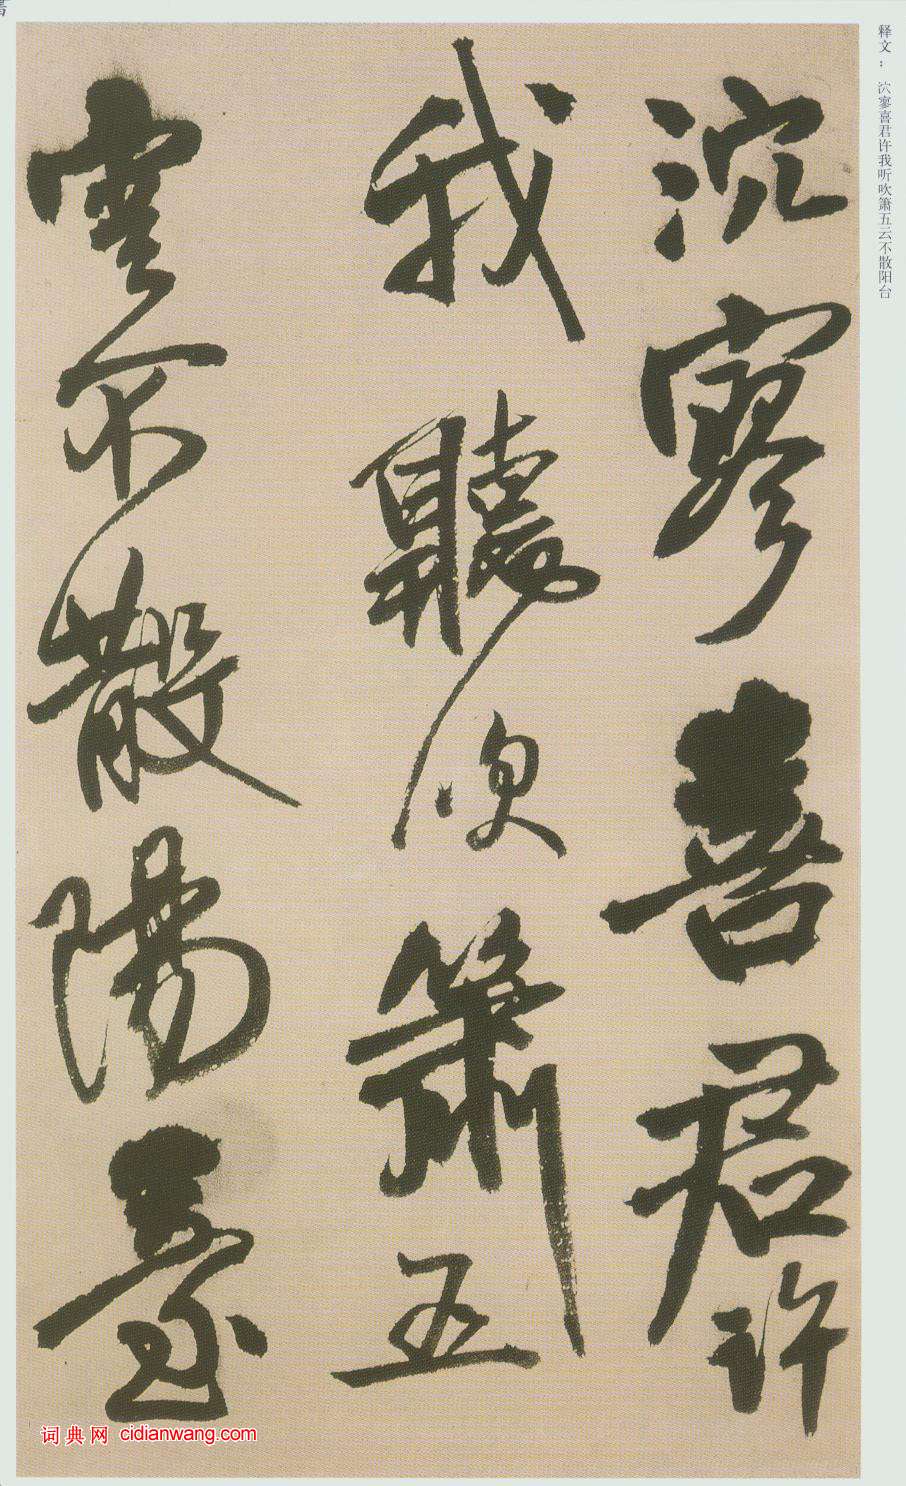 泬寥喜君許
我聽吹簫五
雲不散陽臺
释文：泬寥喜君许我听吹箫五云不散阳台
词典网 cidianwang.com